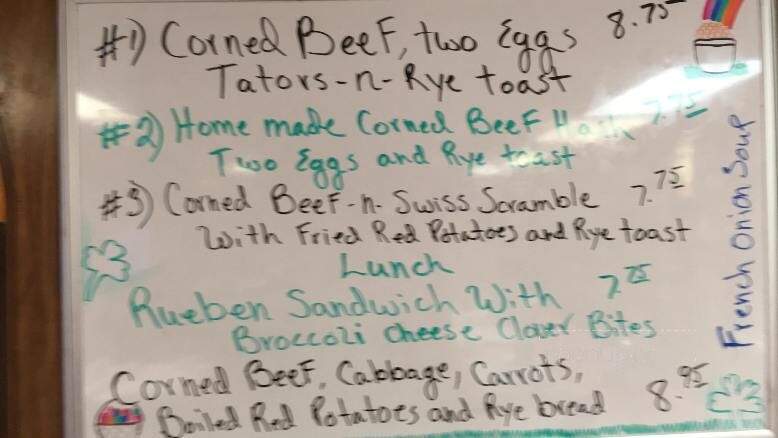 #1) Corned Beef, two Eggs 8.75
Tators-n-Rye toast
#2) Home made Corned Beef Hash 7.75
Two Eggs and Rye toast
#3) Corned Beef-n-Swiss Scramble 7.75
With Fried Red Potatoes and Rye toast
Lunch
Rueben Sandwich With 7.75
Broccoli Cheese Clover Bites
Corned Beef, Cabbage, Carrots,
Boiled Red Potatoes and Rye bread 8.95
French Onion Soup